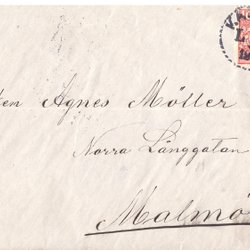 ken Agnes Möller
Norra Långgatan
Malmö